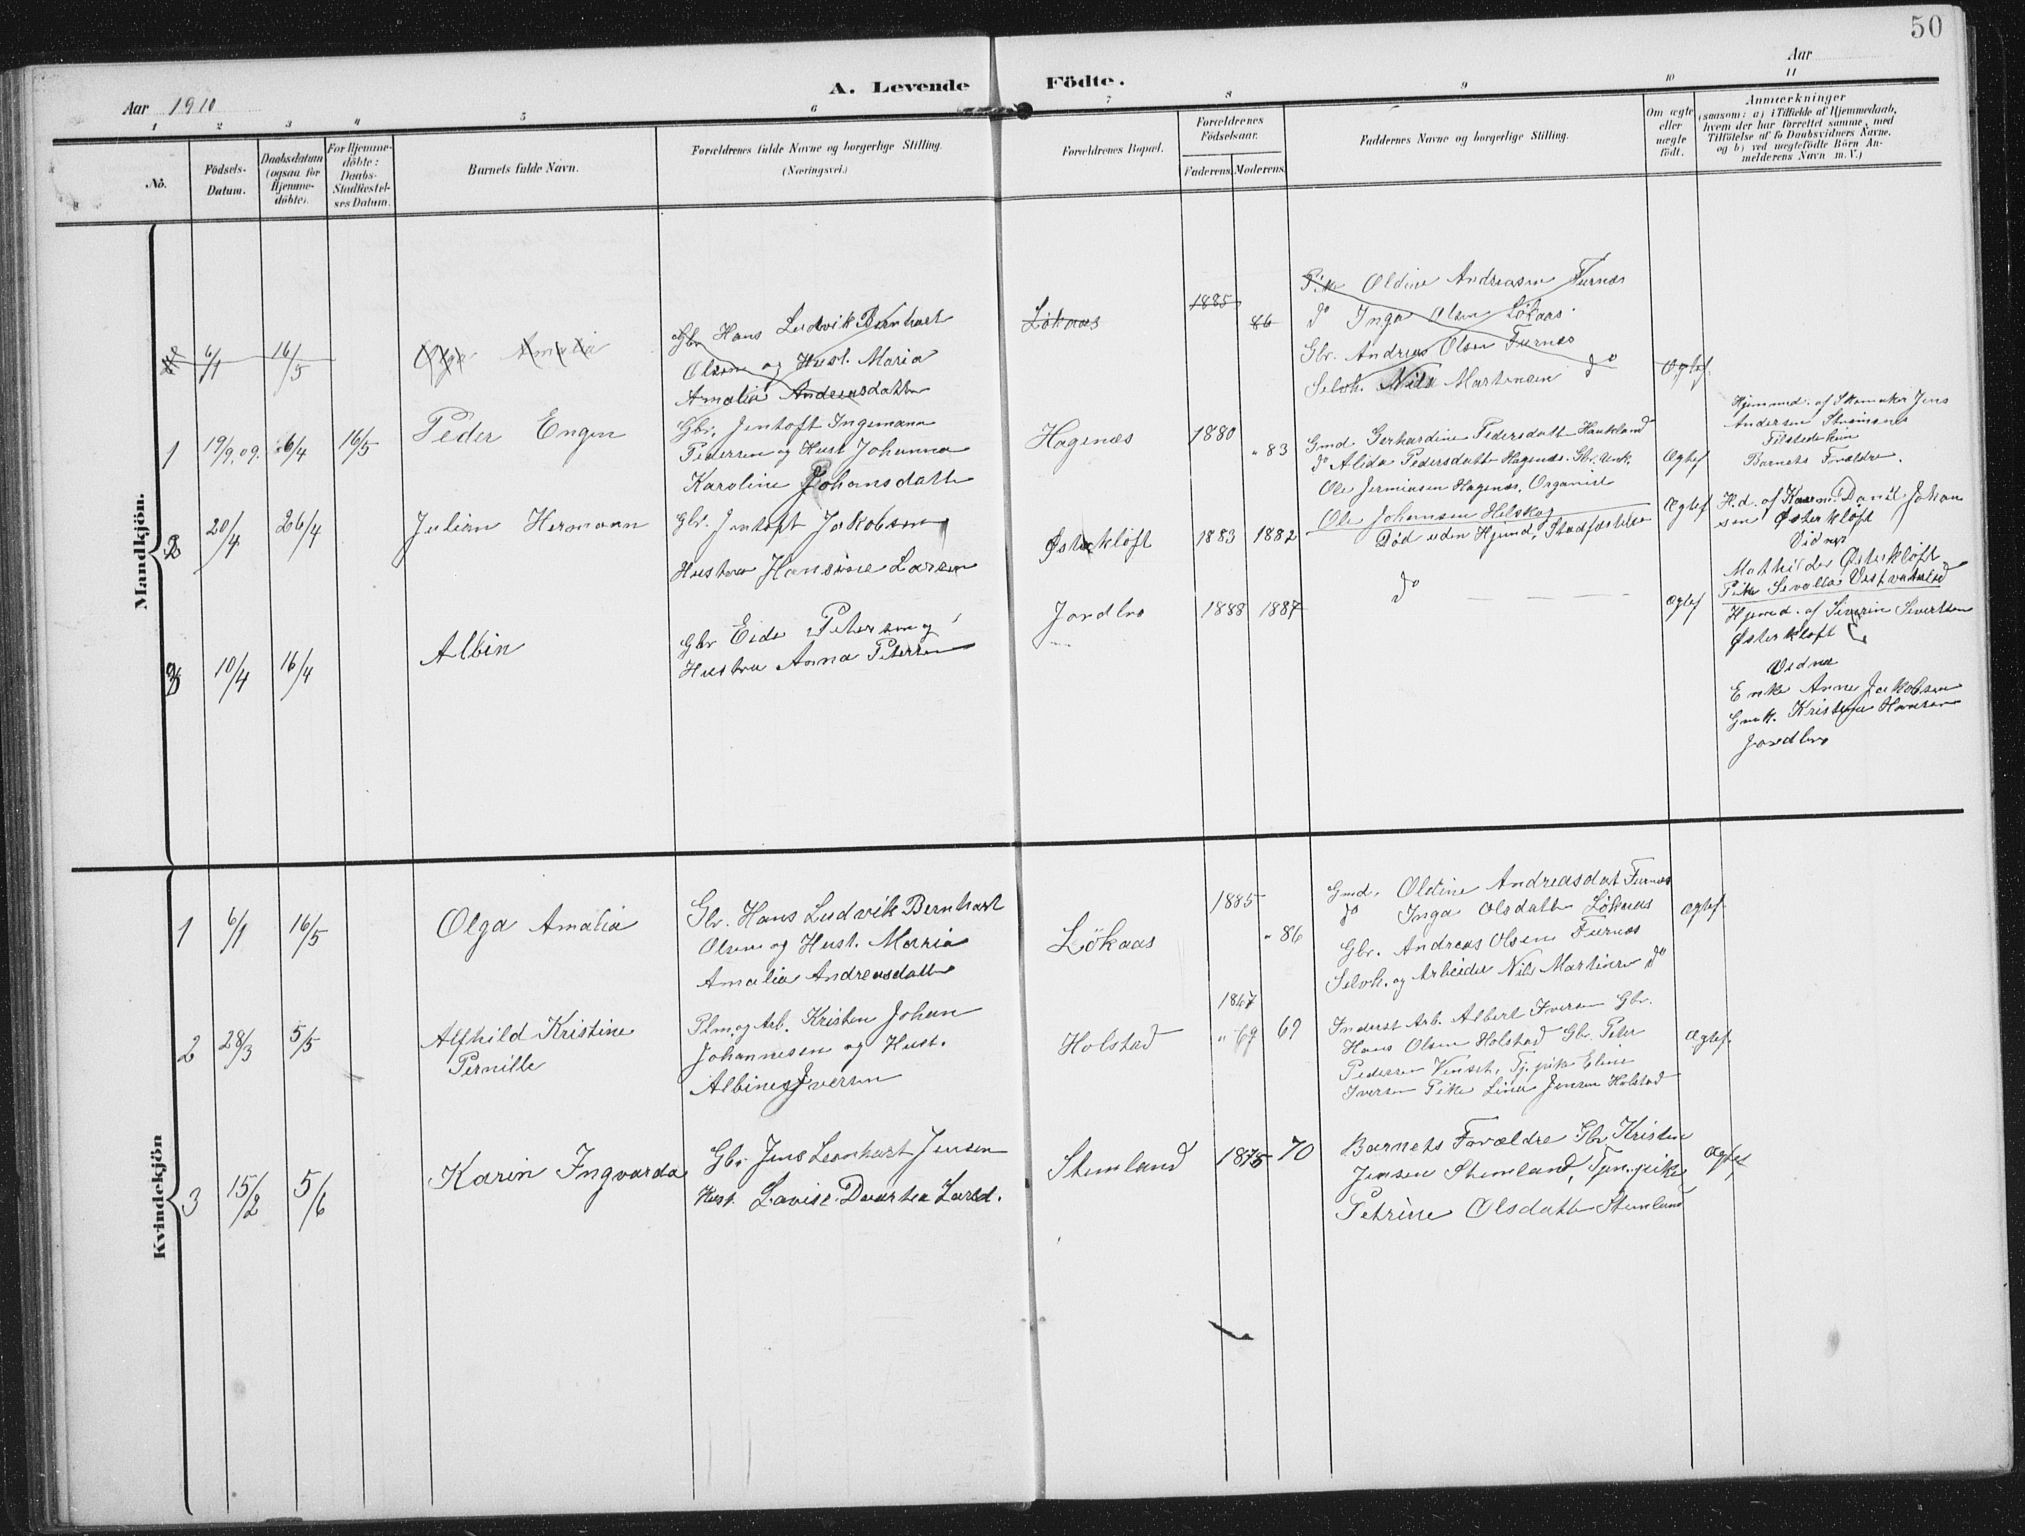 50
A. Levende Födte.
Aar 1910
Aar
1 2 3 4 5 6 7 8 9 10 11
No.
Födsels-
Datum.
Daabsdatum
(ogsaa for
Hjemme-
döbte).
For Hjemme-
döbte:
Daabs-
Stadfæstel-
ses Datum.
Barnets fulde Navn.
Forældrenes fulde Navne og borgerlige Stilling.
(Næringsvei.)
Forældrenes Bopæl.
Forældrenes
Födselsaar.
Faderens.
Moderens.
Faddernes Navne og borgerlige Stilling.
Om ægte
eller
uægte
födt.
Anmærkninger
(saasom: a) i Tilfælde af Hjemmedaab,
hvem der har forrettet samme, med
Tilföielse af to Daabsvidners Navne.
og b) ved uægtefödte Börn An-
melderens Navn m. V.)
Mandkjön.
6/1 16/5 Olga Amalia
Gbr Hans Ludvik Bernhart
Olsen og Hust. Maria
Amalia Andreasdatter
Lökaas 1885 86
Pike Oldine Andreasen Furnes
do Inga Olsen Lökaas.
Gbr. Andreas Olsen Furnes
Selvh. Nils Martensen do
Ægtef.
1 19/9.09. 6/4 16/5 Peder Engen
Gbr. Jentoft Ingemann
Pedersen og Hust Johanna
Karoline Johansdatt
Hagenæs 1880 " 83
Gmd. Gerhardine Pedersdatt Haukland
do Alida Pedersdatt Hagenæs. Gbr. Unk.
Ole Jermiasen Hagenæs. Organist
Ole Johansen Helskog
Ægtef
Hjemmed. af Skomaker Jens
Andersen Strömsnes
Tilstede kun
Barnets Forældre.
2 20/4 26/4 Julian Hermann
Gbr. Jentoft Jakobsen
Hustru Hansine Larsen
Østerkløft 1883 1882
Död uden Hjmd. Stadfæstelse
Ægtef
H.d. af Daniel Johan
sen Østerkløft
Vidner
Mathilde Østerkløft
Pike
3 10/4 16/4 Albin
Gbr Eide Petersen og
Hustru Anna Petersen
Jordbro 1888 1887
do
Ægtef
Hjmd. af Severin Sivertsen
Østerkløft
Vidner
Enke Anne Jakobsen
Gmk. Kristine Hansen
Jordbro
Kvindekjön
1 6/1 16/5 Olga Amalia
Gbr. Hans Ludvik Bernhart
Olsen og Hust. Maria
Amalia Andreasdatt
Lökaas 1885 " 86
Gmd. Oldine Andreasdat Furnes
do Inga Olsdatt Lökaas
Gbr. Andreas Olsen Furnes
Selvh. og Arbeider Nils Martinsen do
Ægtef.
2 28/3 5/5 Alfhild Kristine
Pernille
Plm. og Arb. Kristen Johan
Johannesen og Hust.
Albine Iversen
Holstad 1867 " 69 69
Inderst Arb. Albert Iversen Gbr.
Hans Olsen Holstad Gbr. Peter
Pedersen Venset, Tj. pike Eline
Iversen Pike Lina Jensen Holstad
Ægtef.
3 15/2 5/6 Karin Ingvarda
Gbr. Jens Leonhart Jensen
Hust. Lovise Dorthea Larsd.
Stemland 1875 70
Barnets Forældre Gbr Kristen
Jensen Stemland, Tjen. pike
Petrine Olsdatt Stemland
Ægtef